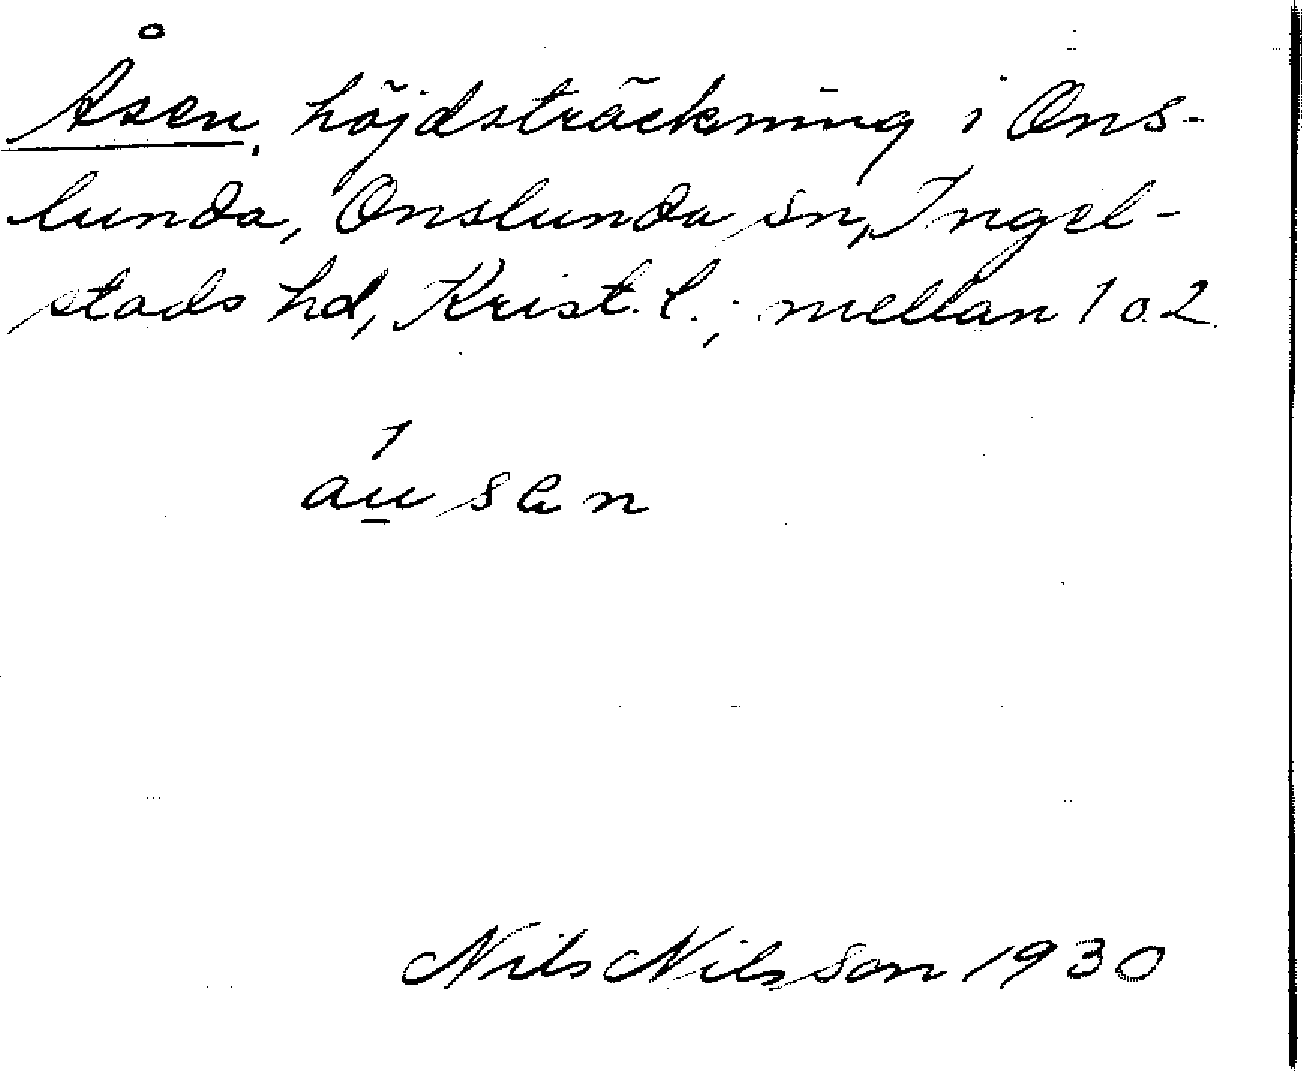 Åsen, höjdsträckning i Ons-
lunda, Onslunda sn, Ingel-
stads hd, Krist. l.; mellan 1 o. 2.
áu̲sen
Nils Nilsson 1930